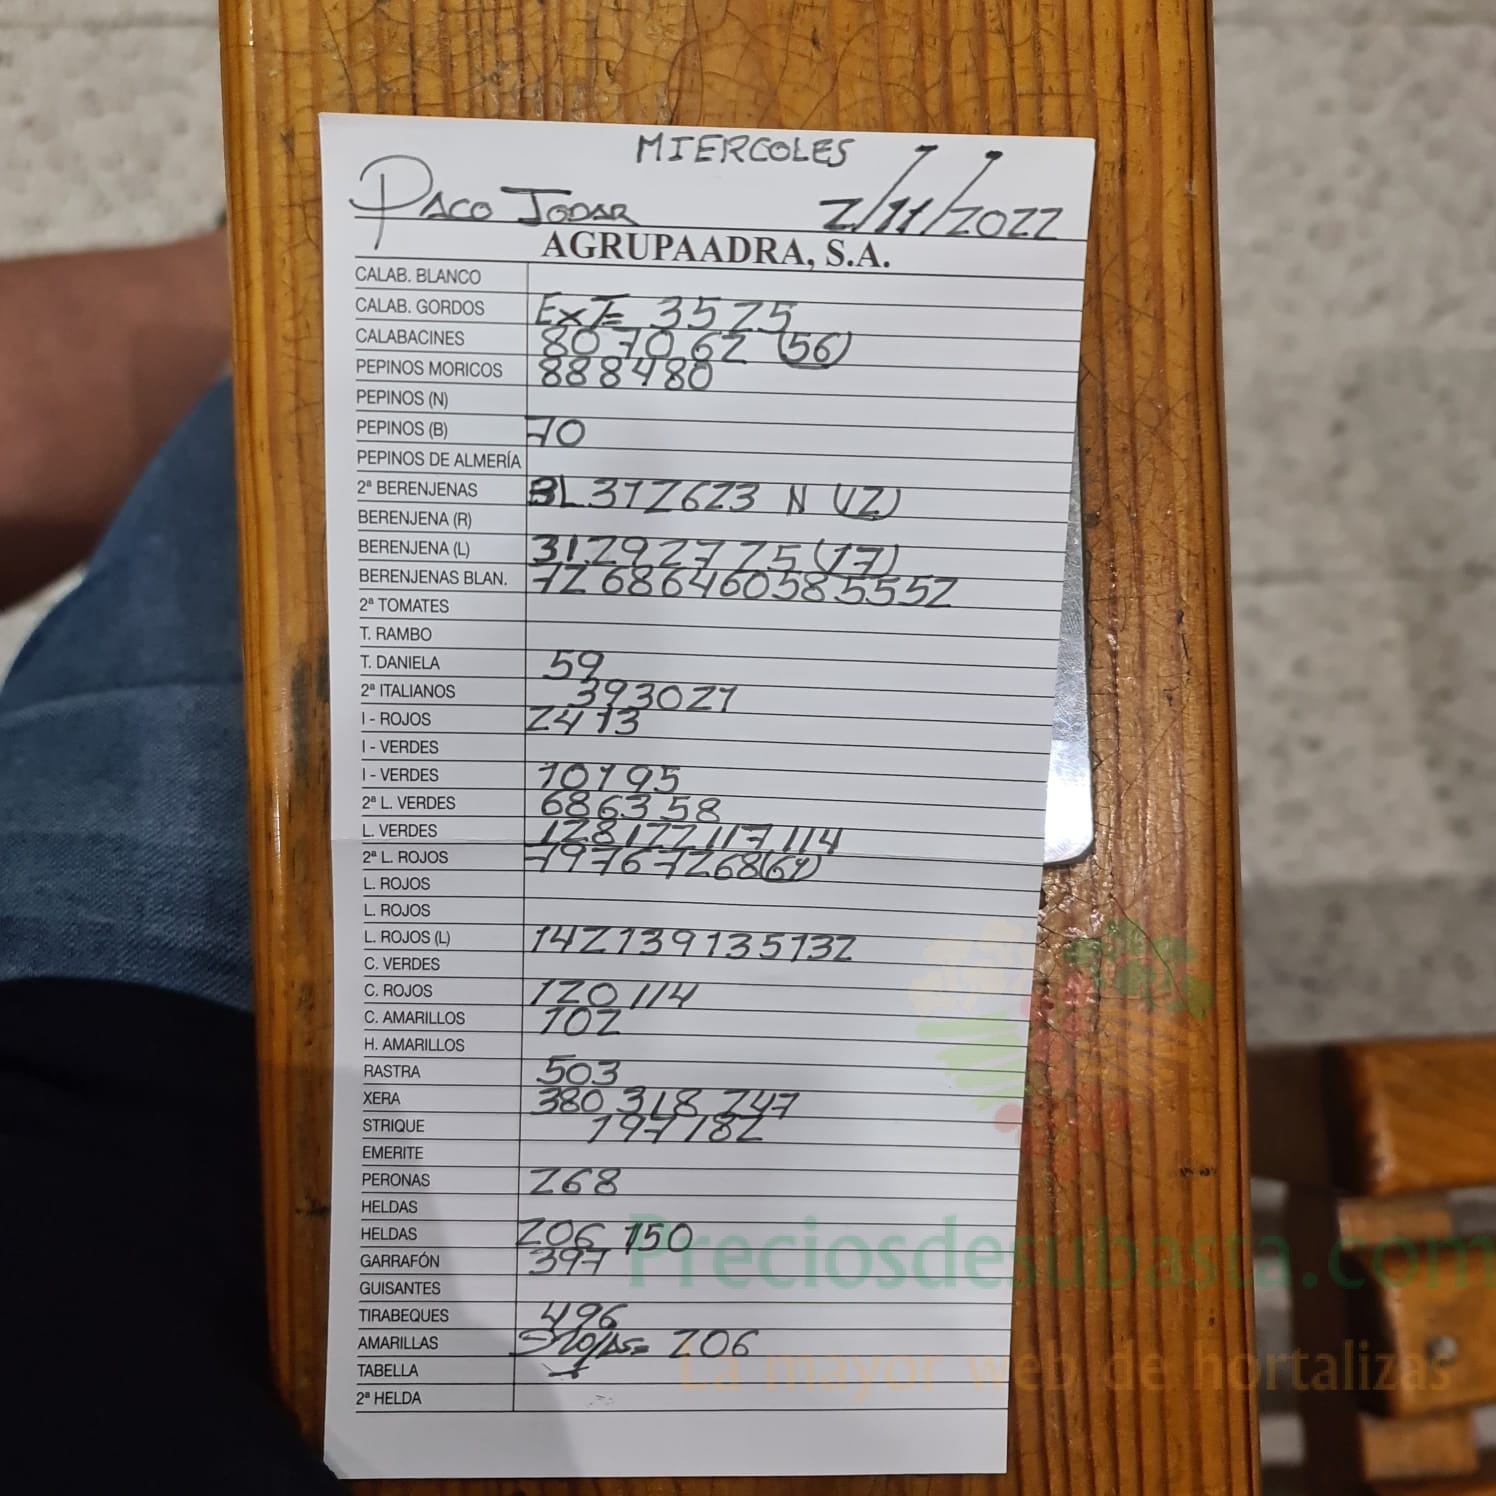 MIERCOLES
PACO JODAR 2/11/2022
AGRUPAADRA, S.A.
CALAB. BLANCO
CALAB. GORDOS EXT= 35 25
CALABACINES 80 70 62 (56)
PEPINOS MORICOS 88 84 80
PEPINOS (N)
PEPINOS (B) 70
PEPINOS DE ALMERÍA
2ª BERENJENAS BL 31 26 23 N (12)
BERENJENA (R)
BERENJENA (L) 31 29 27 25 (17)
BERENJENAS BLAN. 72 68 64 60 58 55 52
2ª TOMATES
T. RAMBO
T. DANIELA 59
2ª ITALIANOS 39 30 21
I - ROJOS 24 13
I - VERDES
I - VERDES 101 95
2ª L. VERDES 68 63 58
L. VERDES 128 122 117 114
2ª L. ROJOS 79 76 72 68 (64)
L. ROJOS
L. ROJOS
L. ROJOS (L) 142 139 135 132
C. VERDES
C. ROJOS 120 114
C. AMARILLOS 102
H. AMARILLOS
RASTRA 503
XERA 380 318 247
STRIQUE 197 182
EMERITE
PERONAS 268
HELDAS
HELDAS 206 150
GARRAFÓN 397
GUISANTES
TIRABEQUES 496
AMARILLAS 206
TABELLA
2ª HELDA
Preciosdesubasta.com
La mayor web de hortalizas